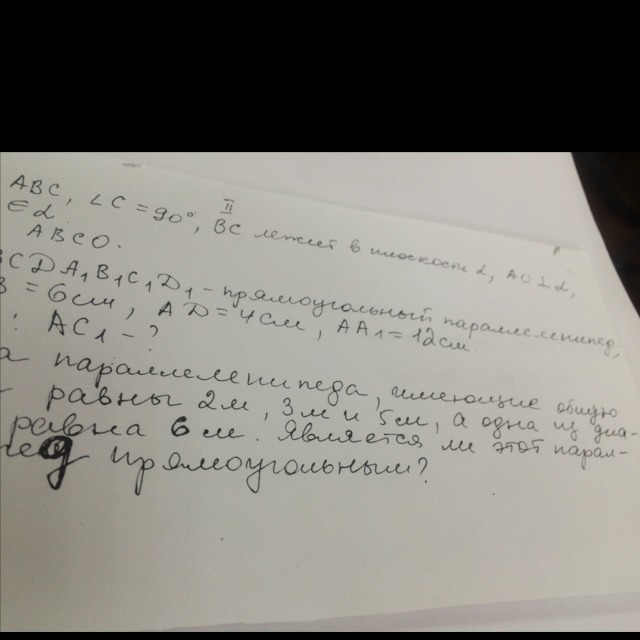 II
ABC, ∠C = 90°, BC лежит в плоскости α, AO ⊥ α,
∈ α.
ABCO.
BCDA₁B₁C₁D₁ - прямоугольный параллелепипед,
B = 6 см, AD = 4 см, AA₁ = 12 см
: AC₁ - ?
а параллелепипеда, имеющие общую
равны 2м, 3м и 5м, а одна из диа-
равна 6 м. Является ли этот парал-
пед прямоугольным?